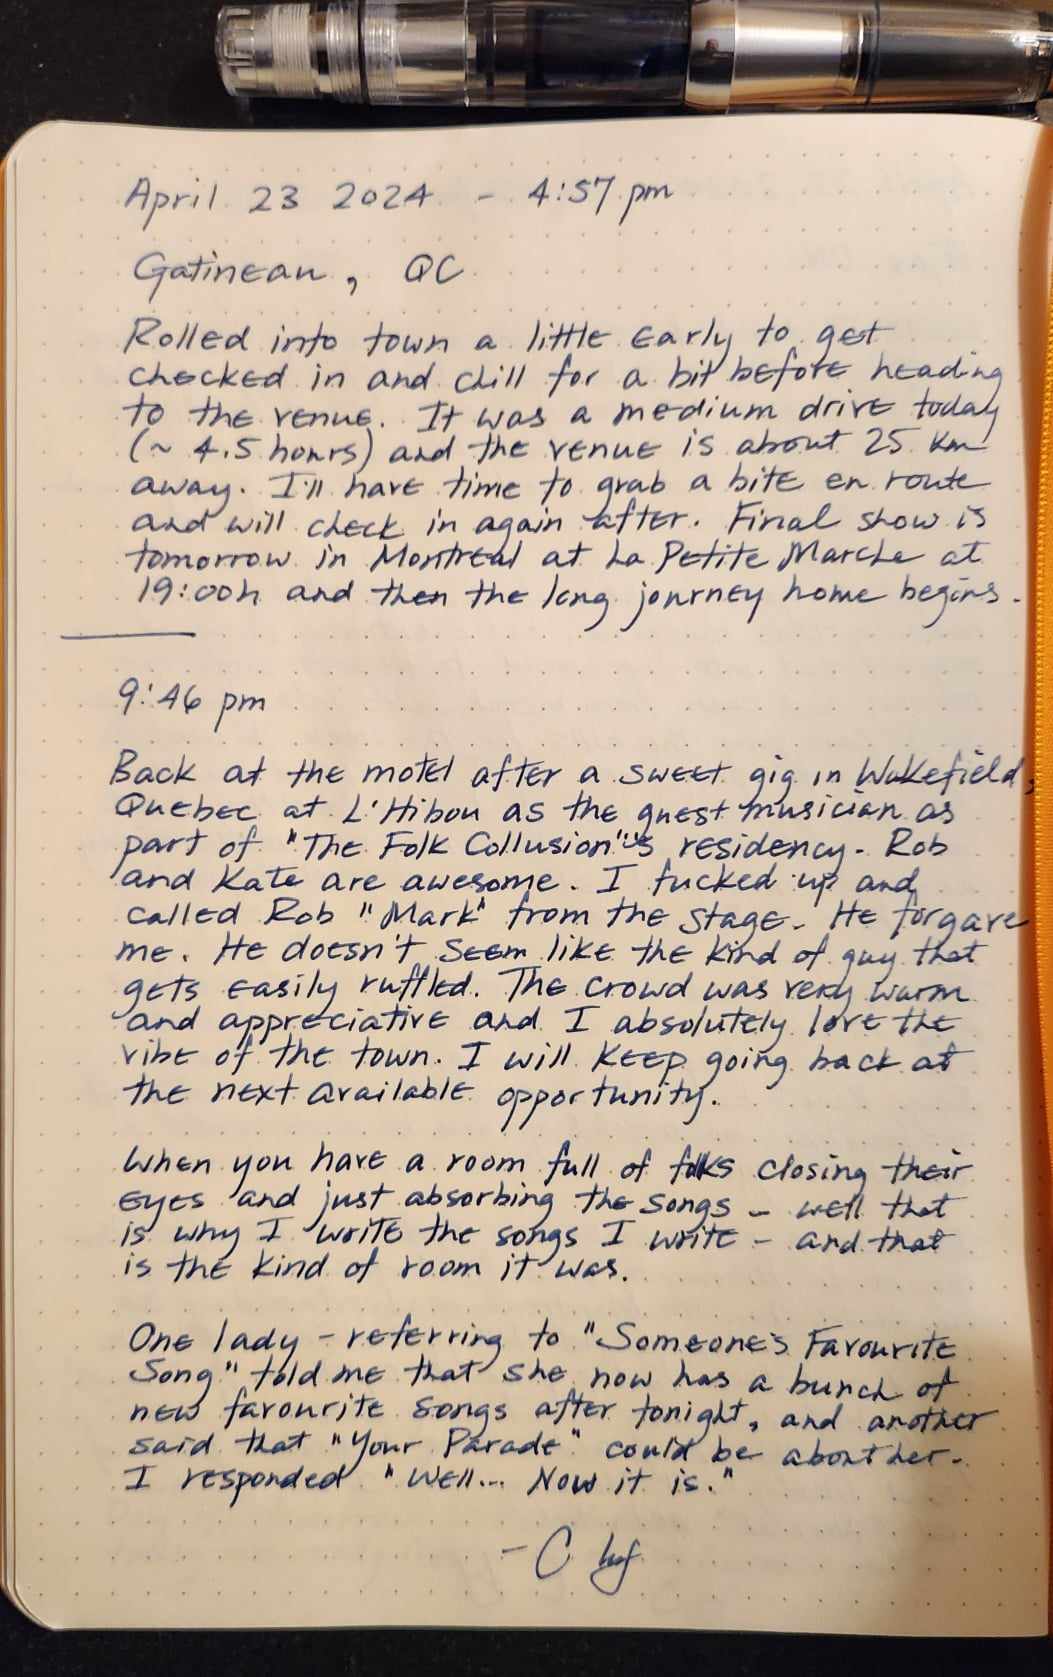 April 23 2024 - 4:57 pm
Gatineau, QC
Rolled into town a little early to get
checked in and chill for a bit before heading
to the venue. It was a medium drive today
(~ 4.5 hours) and the venue is about 25 km
away. I'll have time to grab a bite en route
and will check in again after. Final show is
tomorrow in Montreal at La Petite Marche at
19:00h and then the long journey home begins.
9:46 pm
Back at the motel after a sweet gig in Wakefield,
Quebec at L'Hibou as the guest musician as
part of "The Folk Collusion"'s residency. Rob
and Kate are awesome. I fucked up and
called Rob "Mark" from the stage. He forgave
me. He doesn't seem like the kind of guy that
gets easily ruffled. The crowd was very warm
and appreciative and I absolutely love the
vibe of the town. I will keep going back at
the next available opportunity.
When you have a room full of folks closing their
eyes and just absorbing the songs - well that
is why I write the songs I write - and that
is the kind of room it was.
One lady - referring to "Someone's Favourite
Song" told me that she now has a bunch of
new favourite songs after tonight, and another
said that "Your Parade" could be about her.
I responded "Well... Now it is."
- C